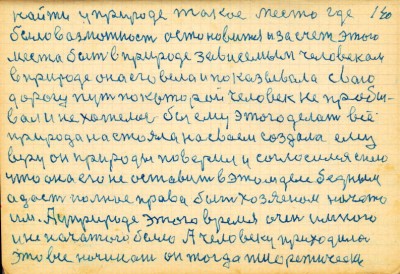 найти у природе такое место где 140
было возможност остановится и за счет этого
места быт в природе зависемым человекам
в природе она его вела и показывала сваю
дорогу пут по которой человек не пробы-
вал и не хателос бы ему этого делат но
природа настояла на своем создала ему
веру он природы поверил и согласился с нею
что она его не оставит в этом деле бедным
а даст полное права быт хозяеном начато
им. А у природе этого время очен много
и не начатого было А человеку приходилос
это все начинат он тогда теоретическ